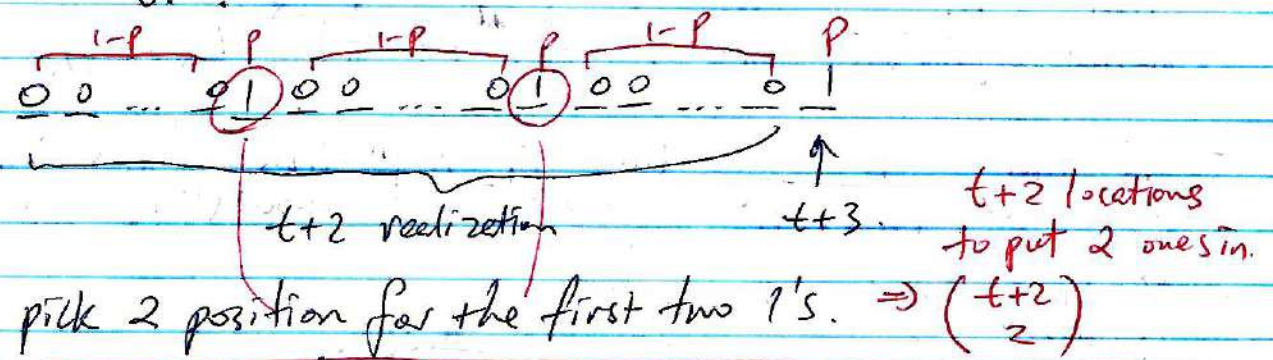 1-p p 1-p p 1-p p
0 0 ... 0 1 0 0 ... 0 1 0 0 ... 0 1
t+2 realization
t+3.
t+2 locations
to put 2 ones in.
pick 2 position for the first two 1's. ⇒ (t+2 2)